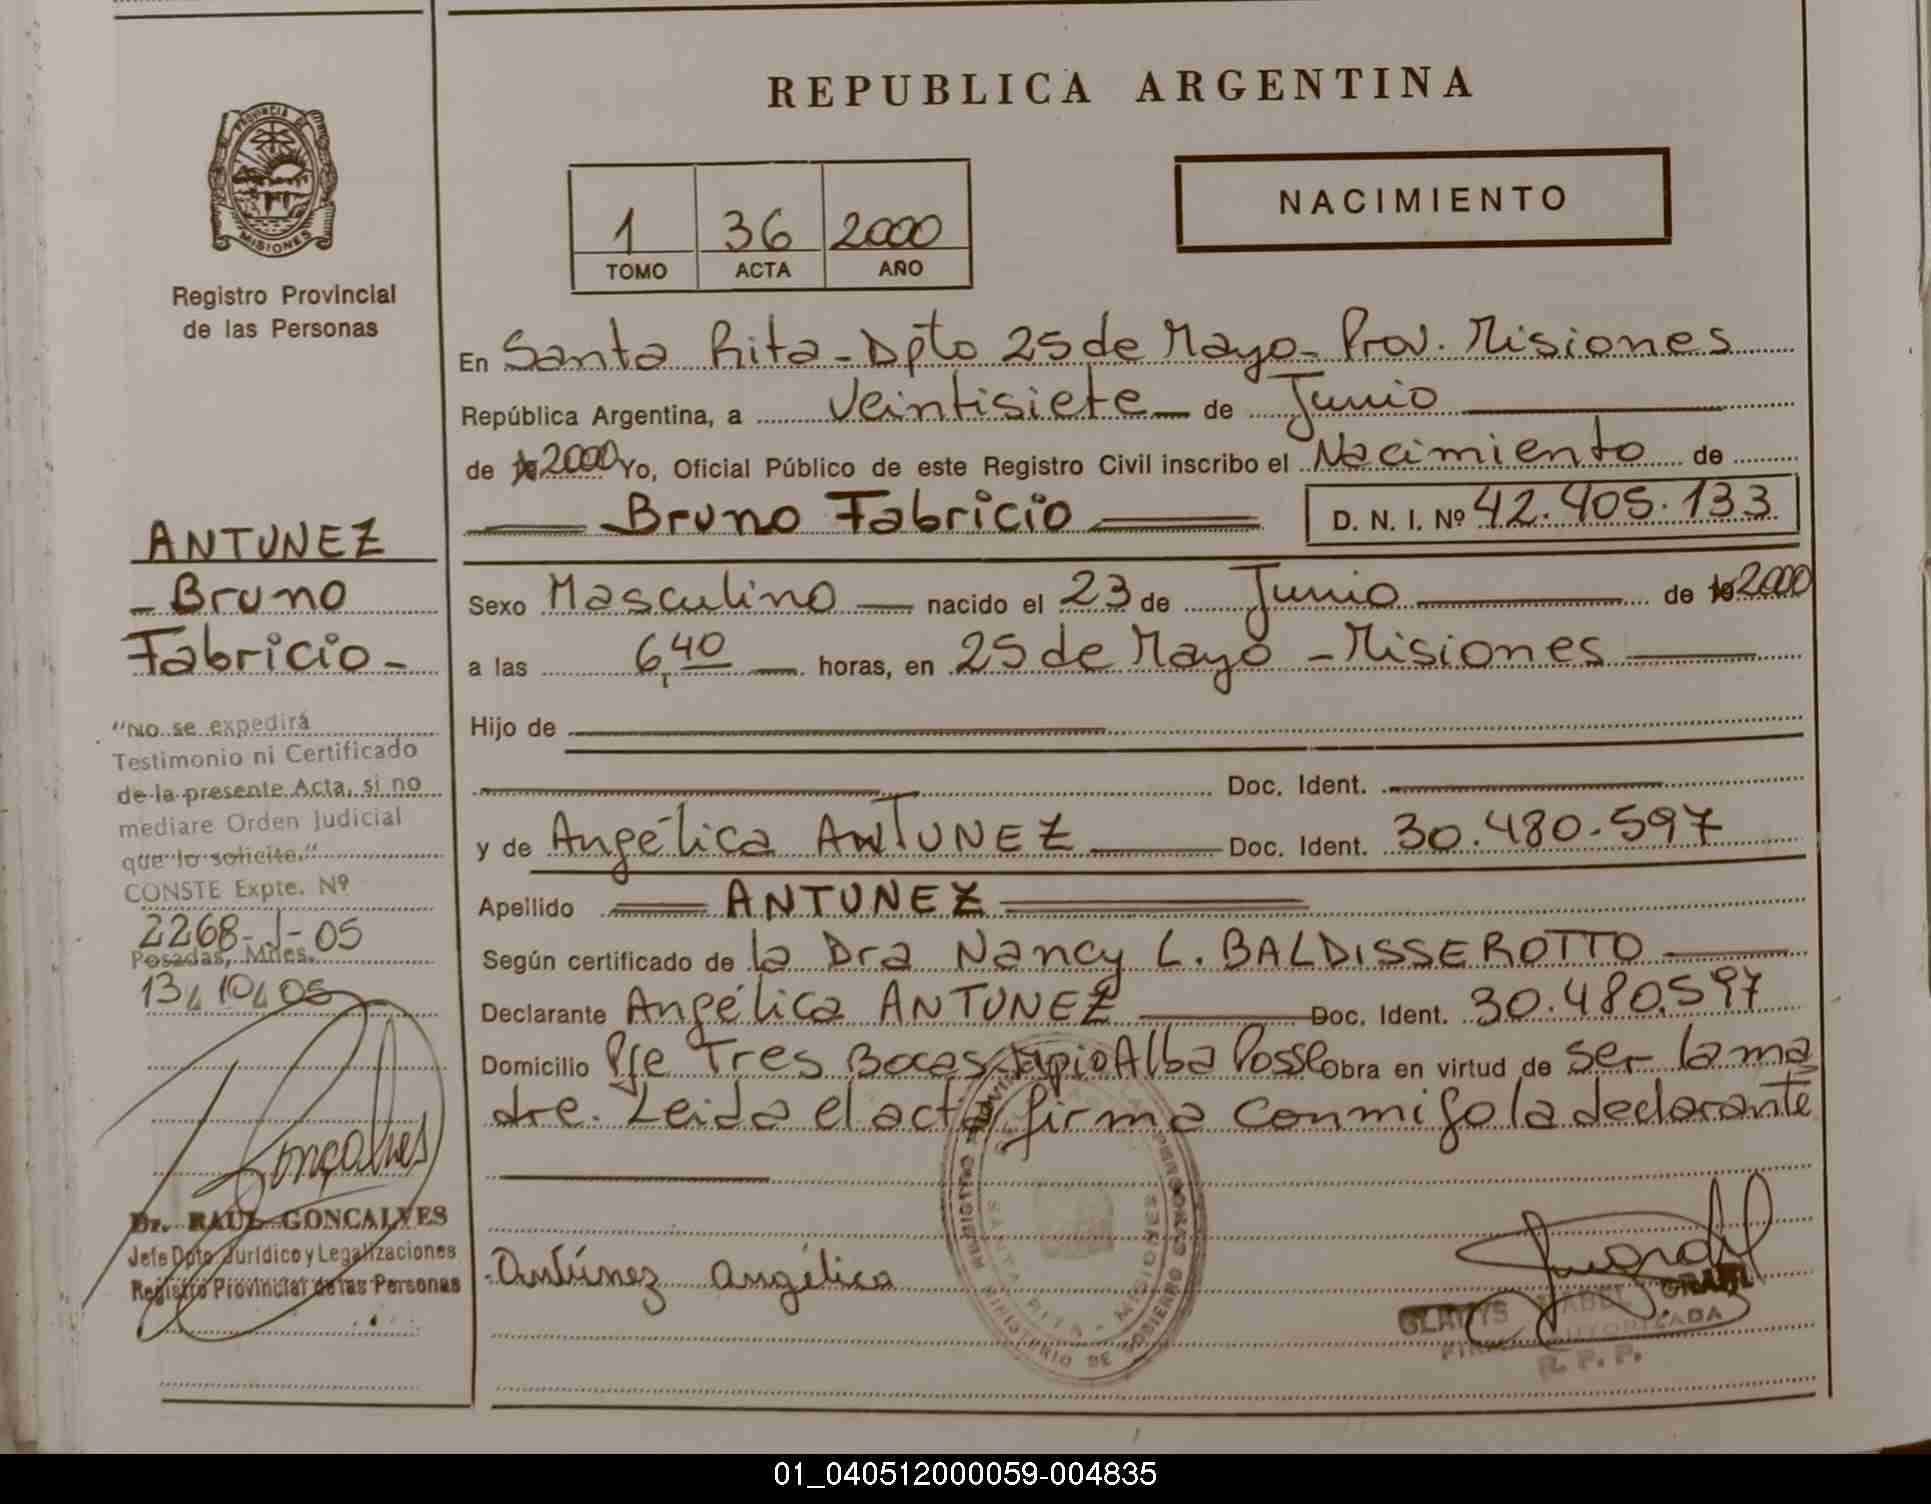 REPUBLICA ARGENTINA
PROVINCIA DE
MISIONES
Registro Provincial
de las Personas
NACIMIENTO
1 36 2000
TOMO ACTA AÑO
En Santa Rita - Dpto 25 de Mayo - Prov. Misiones
República Argentina, a Veintisiete de Junio
de 2000 Yo, Oficial Público de este Registro Civil inscribo el Nacimiento de
Bruno Fabricio D. N. I. Nº 42.405.133
Sexo Masculino nacido el 23 de Junio de 2000
a las 6,40 horas, en 25 de Mayo - Misiones
Hijo de
Doc. Ident.
y de Angélica ANTUNEZ Doc. Ident. 30.480.597
Apellido ANTUNEZ
Según certificado de la Dra Nancy L. BALDISSEROTTO
Declarante Angélica ANTUNEZ Doc. Ident. 30.480.597
Domicilio Pje Tres Bocas Alba Posse Obra en virtud de ser la ma
dre. Leida el acta firma conmigo la declarante
Antúnez Angélica
GLADYS MABEL GRAEL
FIRMA AUTORIZADA
R. P. P.
SANTA RITA - MISIONES
MINISTERIO DE GOBIERNO
ANTUNEZ
- Bruno
Fabricio -
"No se expedirá
Testimonio ni Certificado
de la presente Acta, si no
mediare Orden Judicial
que lo solicite."
CONSTE Expte. Nº
2268-J-05
Posadas, Mnes.
13,10,05
Gonçalves
Dr. RAUL GONCALVES
Jefe Dpto. Jurídico y Legalizaciones
Registro Provincial de las Personas
01_040512000059-004835